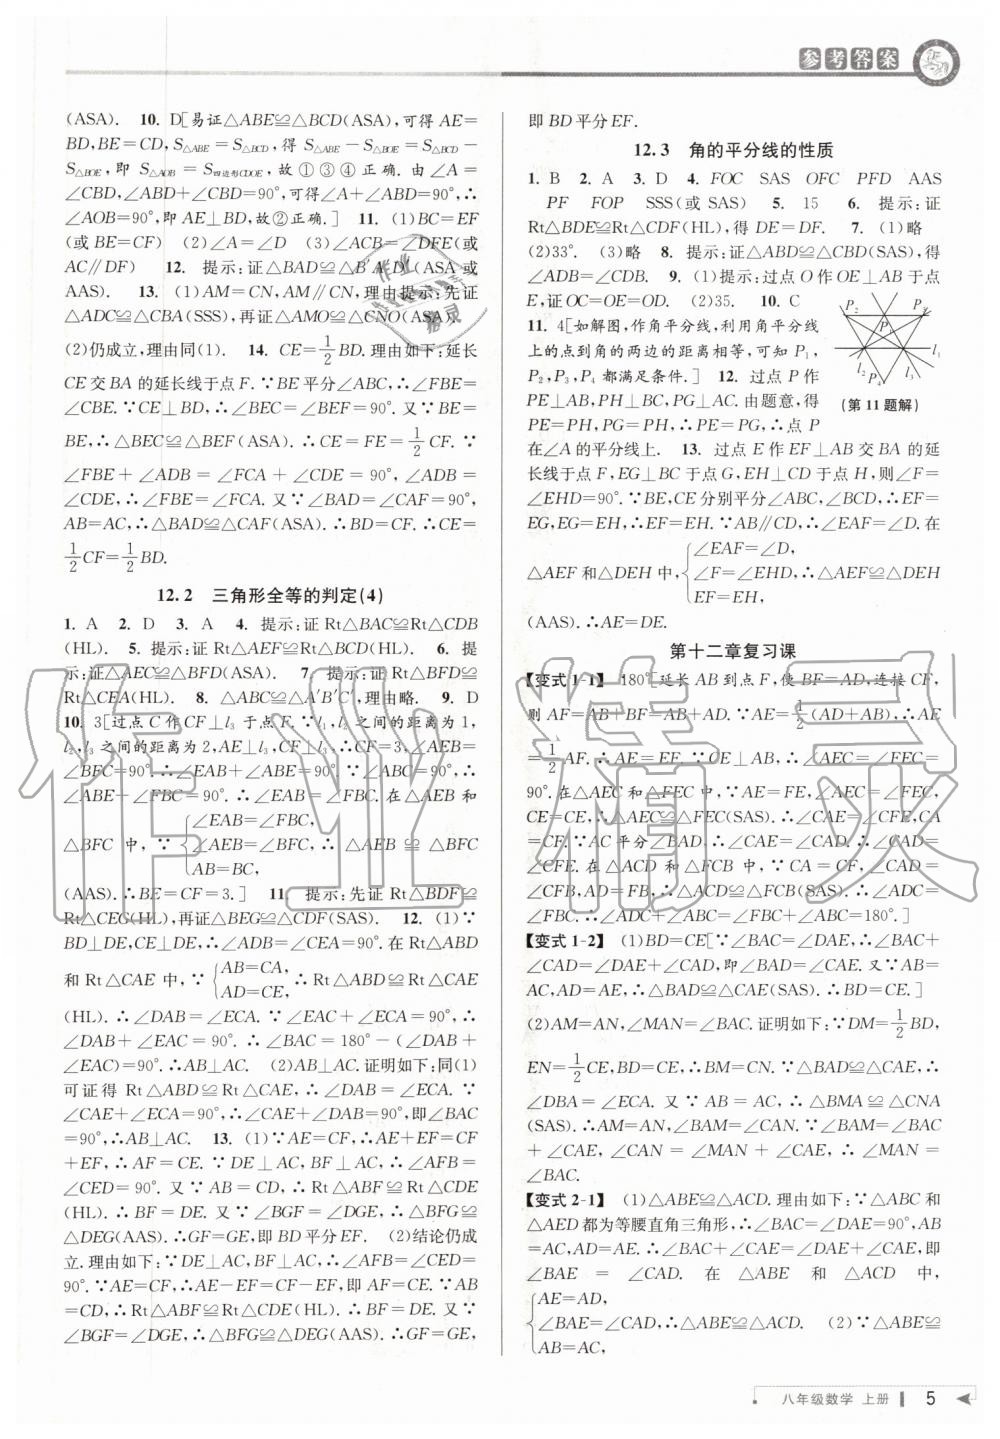 参考答案
(ASA). 10. D[易证△ABE≌△BCD(ASA),可得 AE=
BD,BE=CD,S△ABE=S△BCD,得 S△ABE-S△BOE=S△BCD-
S△BOE,即 S△AOB=S四边形CDOE,故①③④正确. 由∠A=
∠CBD,∠ABD+∠CBD=90°,可得∠A+∠ABD=90°,∴
∠AOB=90°,即 AE⊥BD,故②正确.] 11. (1)BC=EF
(或 BE=CF) (2)∠A=∠D (3)∠ACB=∠DFE(或
AC∥DF) 12. 提示:证△BAD≌△B′A′D′(ASA 或
AAS). 13. (1)AM=CN,AM∥CN,理由提示:先证
△ADC≌△CBA(SSS),再证△AMO≌△CNO(ASA).
(2)仍成立,理由同(1). 14. CE=1/2BD. 理由如下:延长
CE 交 BA 的延长线于点 F. ∵BE 平分∠ABC,∴∠FBE=
∠CBE. ∵CE⊥BD,∴∠BEC=∠BEF=90°. 又∵BE=
BE,∴△BEC≌△BEF(ASA). ∴CE=FE=1/2CF. ∵
∠FBE+∠ADB=∠FCA+∠CDE=90°,∠ADB=
∠CDE,∴∠FBE=∠FCA. 又∵∠BAD=∠CAF=90°,
AB=AC,∴△BAD≌△CAF(ASA). ∴BD=CF. ∴CE=
1/2CF=1/2BD.
12.2 三角形全等的判定(4)
1. A 2. D 3. A 4. 提示:证 Rt△BAC≌Rt△CDB
(HL). 5. 提示:证 Rt△AEF≌Rt△BCD(HL). 6. 提
示:证△AEC≌△BFD(ASA). 7. 提示:证 Rt△BFD≌
Rt△CEA(HL). 8. △ABC≌△A′B′C′,理由略. 9. D
10. 3[过点 C 作 CF⊥l3 于点 F. ∵l1,l2 之间的距离为 1,
l2,l3 之间的距离为 2,AE⊥l3,CF⊥l3,∴CF=3,∠AEB=
∠BFC=90°,∴∠EAB+∠ABE=90°. ∵∠ABC=90°,∴
∠ABE+∠FBC=90°,∴∠EAB=∠FBC. 在△AEB 和
△BFC 中,∵{∠EAB=∠FBC,
∠AEB=∠BFC,∴△AEB≌△BFC
AB=BC,
(AAS). ∴BE=CF=3.] 11. 提示:先证 Rt△BDF≌
Rt△CEG(HL),再证△BEG≌△CDF(SAS). 12. (1)∵
BD⊥DE,CE⊥DE,∴∠ADB=∠CEA=90°. 在 Rt△ABD
和 Rt△CAE 中,∵{AB=CA,
AD=CE,∴Rt△ABD≌Rt△CAE
(HL). ∴∠DAB=∠ECA. ∵∠ECA+∠EAC=90°,∴
∠DAB+∠EAC=90°,∴∠BAC=180°-(∠DAB+
∠EAC)=90°. ∴AB⊥AC. (2)AB⊥AC. 证明如下:同(1)
可证得 Rt△ABD≌Rt△CAE,∴∠DAB=∠ECA. ∵
∠CAE+∠ECA=90°,∴∠CAE+∠DAB=90°,即∠BAC
=90°,∴AB⊥AC. 13. (1)∵AE=CF,∴AE+EF=CF
+EF,∴AF=CE. ∵DE⊥AC,BF⊥AC,∴∠AFB=
∠CED=90°. 又∵AB=CD,∴Rt△ABF≌Rt△CDE
(HL). ∴BF=DE. 又∵∠BGF=∠DGE,∴△BFG≌
△DEG(AAS). ∴GF=GE,即 BD 平分 EF. (2)结论仍成
立. 理由如下:∵DE⊥AC,BF⊥AC,∴∠AFB=∠CED=
90°. ∵AE=CF,∴AE-EF=CF-EF,即 AF=CE. ∵AB
=CD,∴Rt△ABF≌Rt△CDE(HL). ∴BF=DE. 又∵
∠BGF=∠DGE,∴△BFG≌△DEG(AAS). ∴GF=GE,
即 BD 平分 EF.
12.3 角的平分线的性质
1. B 2. A 3. D 4. FOC SAS OFC PFD AAS
PF FOP SSS(或 SAS) 5. 15 6. 提示:证
Rt△BDE≌Rt△CDF(HL),得 DE=DF. 7. (1)略
(2)33°. (3)略 8. 提示:证△ABD≌△CBD(SAS),得
∠ADB=∠CDB. 9. (1)提示:过点 O 作 OE⊥AC 于点
E,证 OC=OE=OD. (2)35. 10. C
11. 4[如解图,作角平分线,利用角平分线
上的点到角的两边的距离相等,可知 P1,
P2,P3,P4 都满足条件.] 12. 过点 P 作
PE⊥AB,PH⊥BC,PG⊥AC. 由题意,得
PE=PH,PG=PH,∴PE=PG,∴点 P
在∠A 的平分线上. 13. 过点 E 作 EF⊥AB 交 BA 的延
长线于点 F,EG⊥BC 于点 G,EH⊥CD 于点 H,则∠F=
∠EHD=90°. ∵BE,CE 分别平分∠ABC,∠BCD,∴EF=
EG,EG=EH,∴EF=EH. ∵AB∥CD,∴∠EAF=∠D. 在
△AEF 和△DEH 中,{∠EAF=∠D,
∠F=∠EHD,∴△AEF≌△DEH
EF=EH,
(AAS). ∴AE=DE.
P2 P3
P1
l1
l2 P4 l3
(第 11 题解)
第十二章复习课
【变式 1-1】 180°[延长 AB 到点 F,使 BF=AD,连接 CF,
则 AF=AB+BF=AB+AD. ∵AE=1/2(AD+AB),∴AE
=1/2AF. ∴AE=EF. ∵CE⊥AB,∴∠AEC=∠FEC=
90°. 在△AEC 和△FEC 中,∵AE=FE,∠AEC=∠FEC,
CE=CE,∴△AEC≌△FEC(SAS). ∴∠CAE=∠CFE,CA
=CF. ∵AC 平分∠BAD,∴∠CAE=∠CAD. ∴∠CAD=
∠CFE. 在△ACD 和△FCB 中,∵CA=CF,∠CAD=
∠CFB,AD=FB,∴△ACD≌△FCB(SAS). ∴∠ADC=
∠FBC,∴∠ADC+∠ABC=∠FBC+∠ABC=180°.]
【变式 1-2】 (1)BD=CE[∵∠BAC=∠DAE,∴∠BAC+
∠CAD=∠DAE+∠CAD,即∠BAD=∠CAE. 又∵AB=
AC,AD=AE,∴△BAD≌△CAE(SAS). ∴BD=CE.]
(2)AM=AN,∠MAN=∠BAC. 证明如下:∵DM=1/2BD,
EN=1/2CE,BD=CE,∴BM=CN. ∵△BAD≌△CAE,∴
∠DBA=∠ECA. 又∵AB=AC,∴△BMA≌△CNA
(SAS). ∴AM=AN,∠BAM=∠CAN. ∵∠BAM=∠BAC
+∠CAE,∠CAN=∠MAN+∠CAM,∴∠MAN=
∠BAC.
【变式 2-1】 (1)△ABE≌△ACD. 理由如下:∵△ABC 和
△AED 都为等腰直角三角形,∴∠BAC=∠DAE=90°,AB
=AC,AE=AD,∴∠BAC+∠CAE=∠DAE+∠CAE,即
∠BAE=∠CAD. 在△ABE 和△ACD 中,
{AE=AD,
∠BAE=∠CAD,∴△ABE≌△ACD(SAS). (2)∵△ABE≌
AB=AC,
八年级数学 上册 5
作业精灵